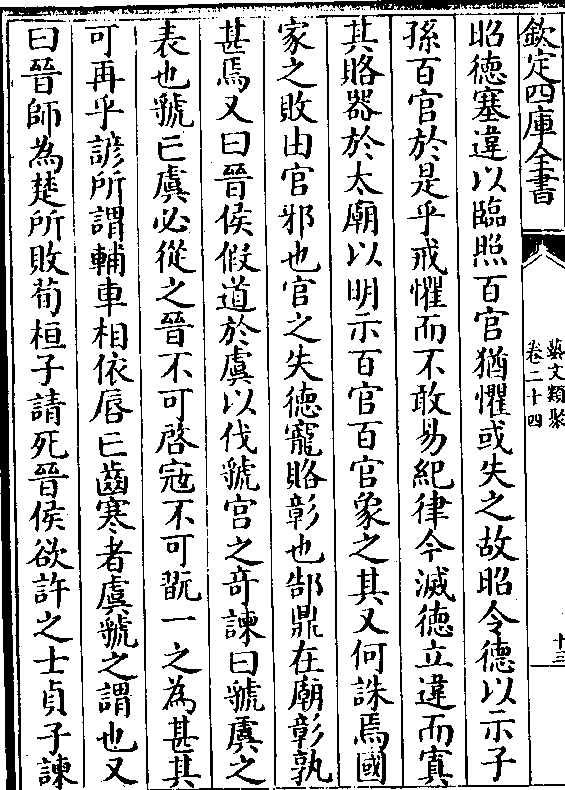 欽定四庫全書
藝文類聚
卷二十四
十三
昭德塞違以臨照百官猶懼或失之故昭令德以示子
孫百官於是乎戒懼而不敢易紀律今滅德立違而寘
其賂器於太廟以明示百官百官象之其又何誅焉國
家之敗由官邪也官之失德寵賂彰也郜鼎在廟彰孰
甚焉又曰晉侯假道於虞以伐虢宫之竒諫曰虢虞之
表也虢亡虞必從之晉不可啓寇不可翫一之為甚其
可再乎諺所謂輔車相依唇亡齒寒者虞虢之謂也又
曰晉師為楚所敗荀桓子請死晉侯欲許之士貞子諫